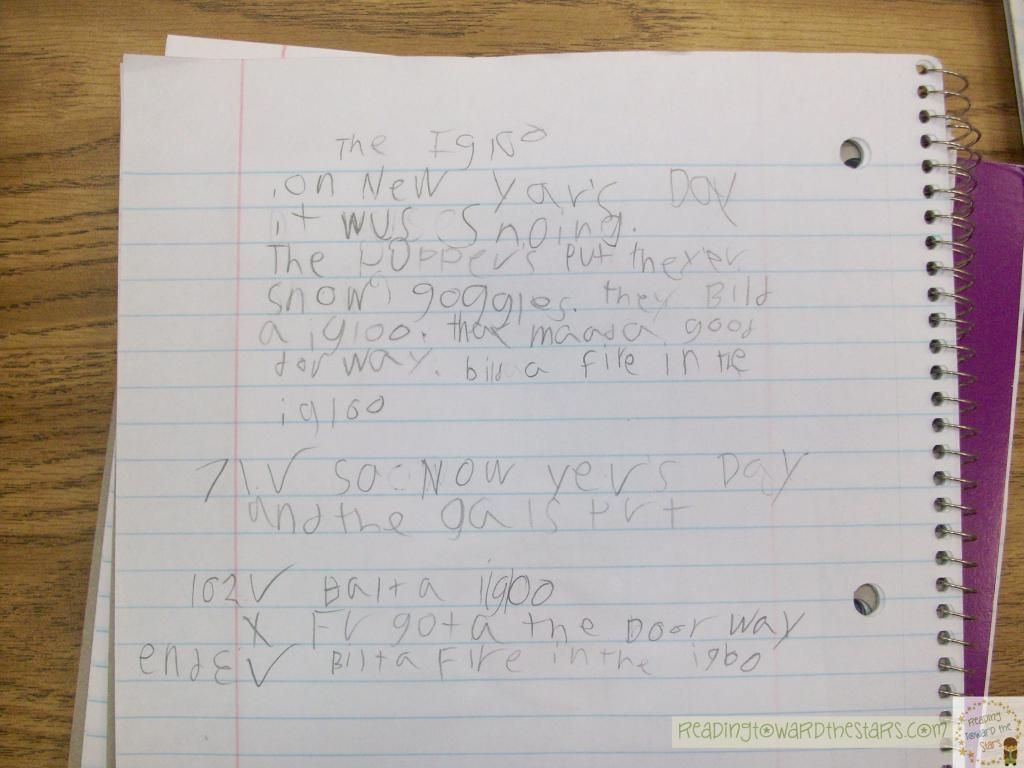 The Igloo
on New Year's Day
it wus Snoing.
The poppers put therer
snow goggles. they Bild
a igloo. that maada good
dorway. bild a fire in the
igloo
71.V so Now yer's Day
and the gals put
102V Balta iigloo
X For gota the Door way
endE V Bilta Fire in the igloo
READINGTOWARDTHESTARS.COM
Reading Toward the Stars